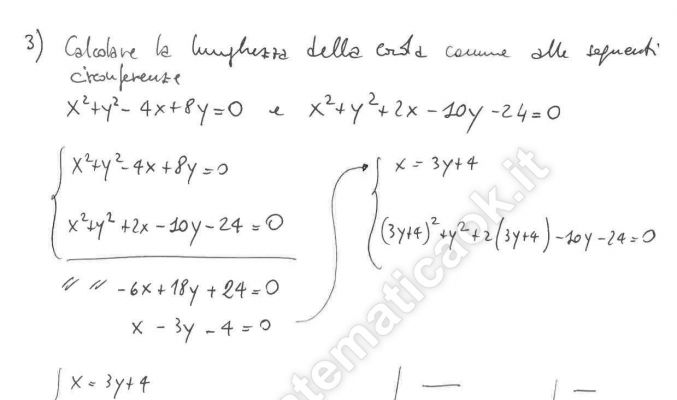 3) Calcolare la lunghezza della corda comune alle seguenti
circonferenze
x²+y²-4x+8y=0 e x²+y²+2x-10y-24=0
x²+y²-4x+8y=0
x²+y²+2x-10y-24=0
// // -6x+18y+24=0
x-3y-4=0
x=3y+4
(3y+4)²+y²+2(3y+4)-10y-24=0
x=3y+4
tematicaok.it